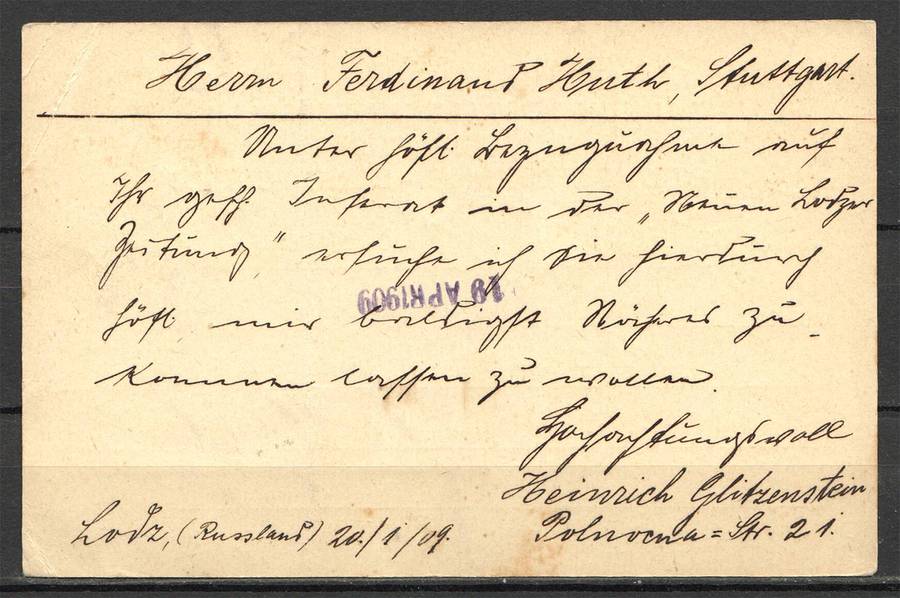 Herrn Ferdinand Huth, Stuttgart.
Unter höfl. Bezugnahme auf
Ihr gefl. Inserat in der „Neuen Lodzer
Zeitung“, ersuche ich Sie hierdurch
19 APR 1909
höfl. mir baldigst Näheres zu-
kommen lassen zu wollen.
Hochachtungsvoll
Heinrich Glitzenstein
Lodz, (Russland) 20./1/09.
Polnocna=Str. 21.